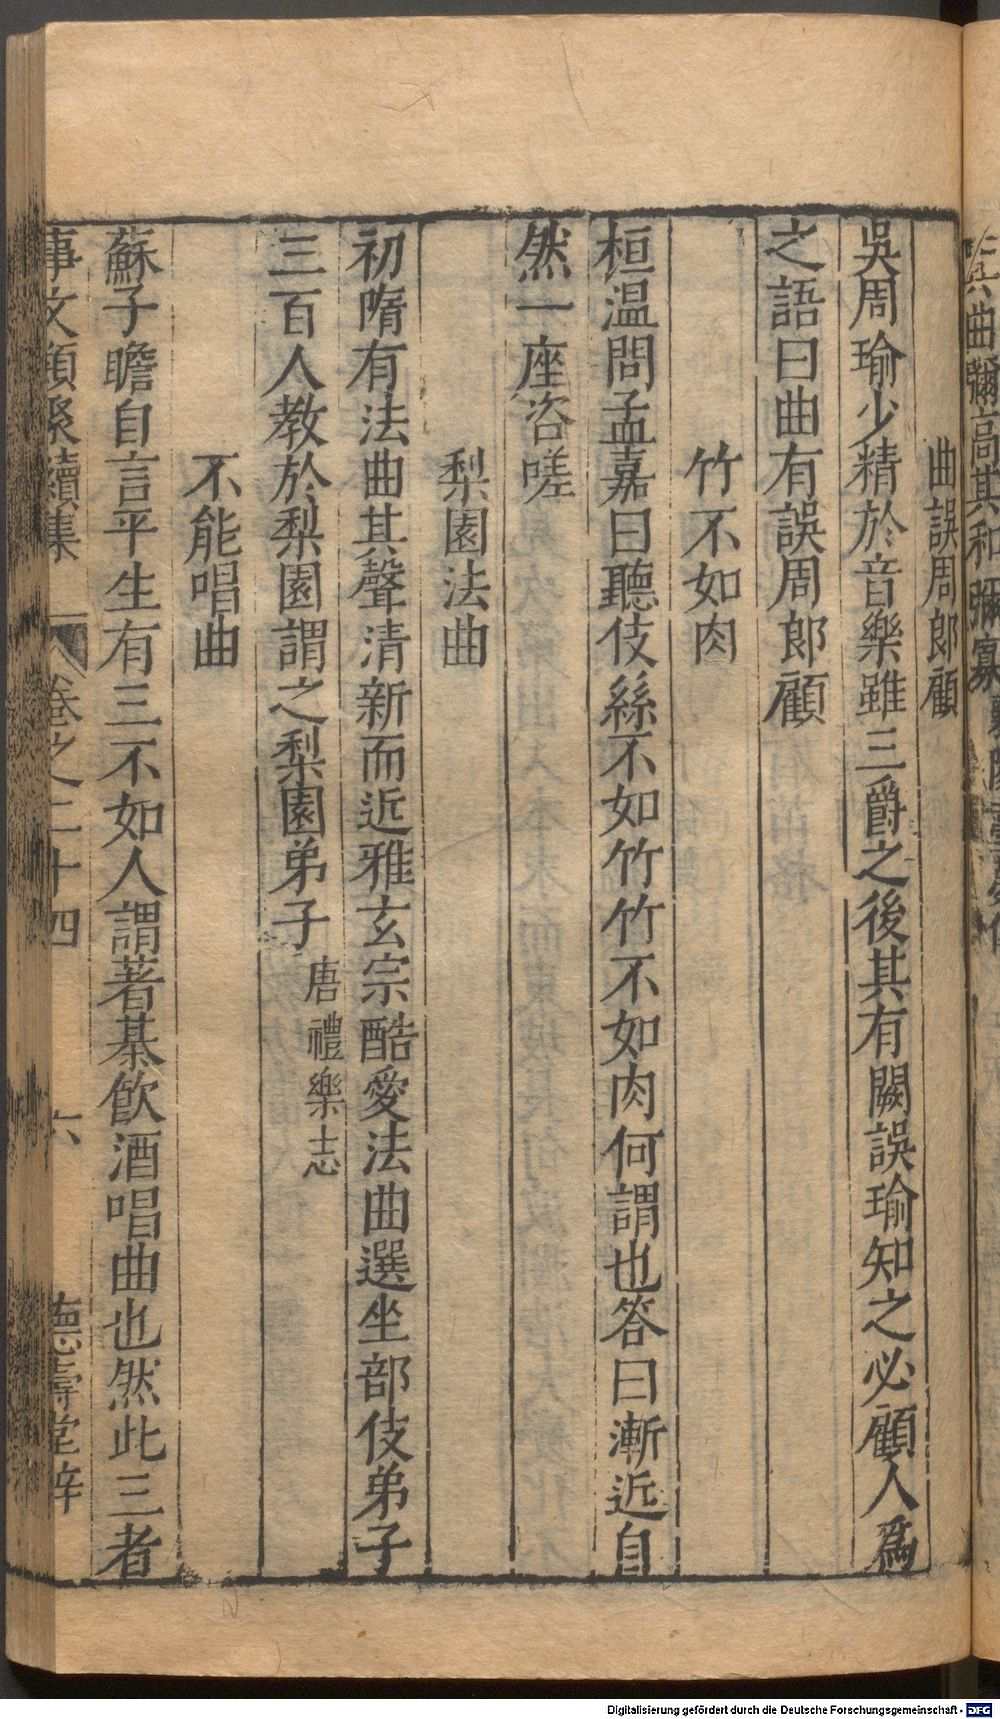 曲誤周郎顧
吳周瑜少精於音樂雖三爵之後其有闕誤瑜知之必顧人為
之語曰曲有誤周郎顧
竹不如肉
桓溫問孟嘉曰聽伎絲不如竹竹不如肉何謂也答曰漸近自
然一座咨嗟
梨園法曲
初隋有法曲其聲清新而近雅玄宗酷愛法曲選坐部伎弟子
三百人教於梨園謂之梨園弟子 唐禮樂志
不能唱曲
蘇子瞻自言平生有三不如人謂著棊飲酒唱曲也然此三者
事文類聚續集 卷之二十四 六 德壽堂梓
Digitalisierung gefördert durch die Deutsche Forschungsgemeinschaft - DFG